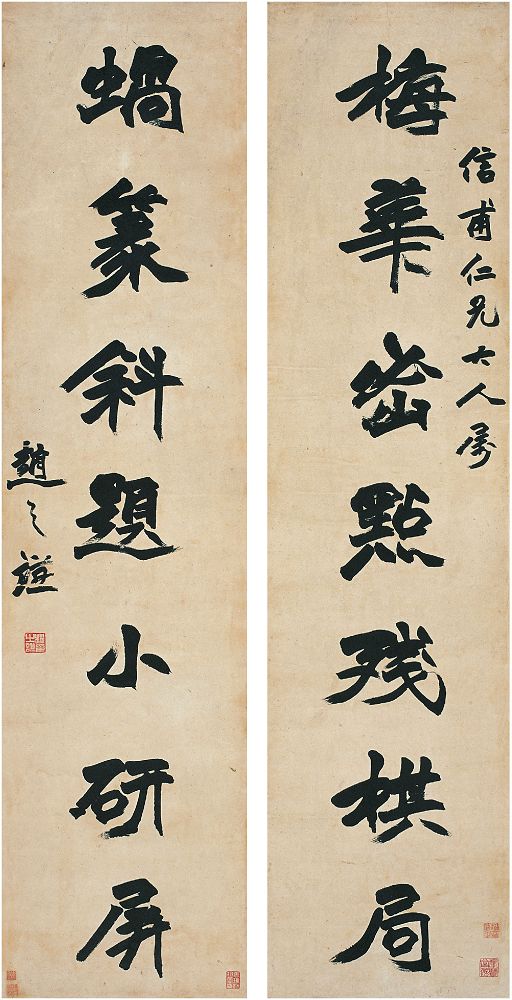 信甫仁兄大人属
梅華密點残棋局
蝸篆斜題小研屏
趙之謙